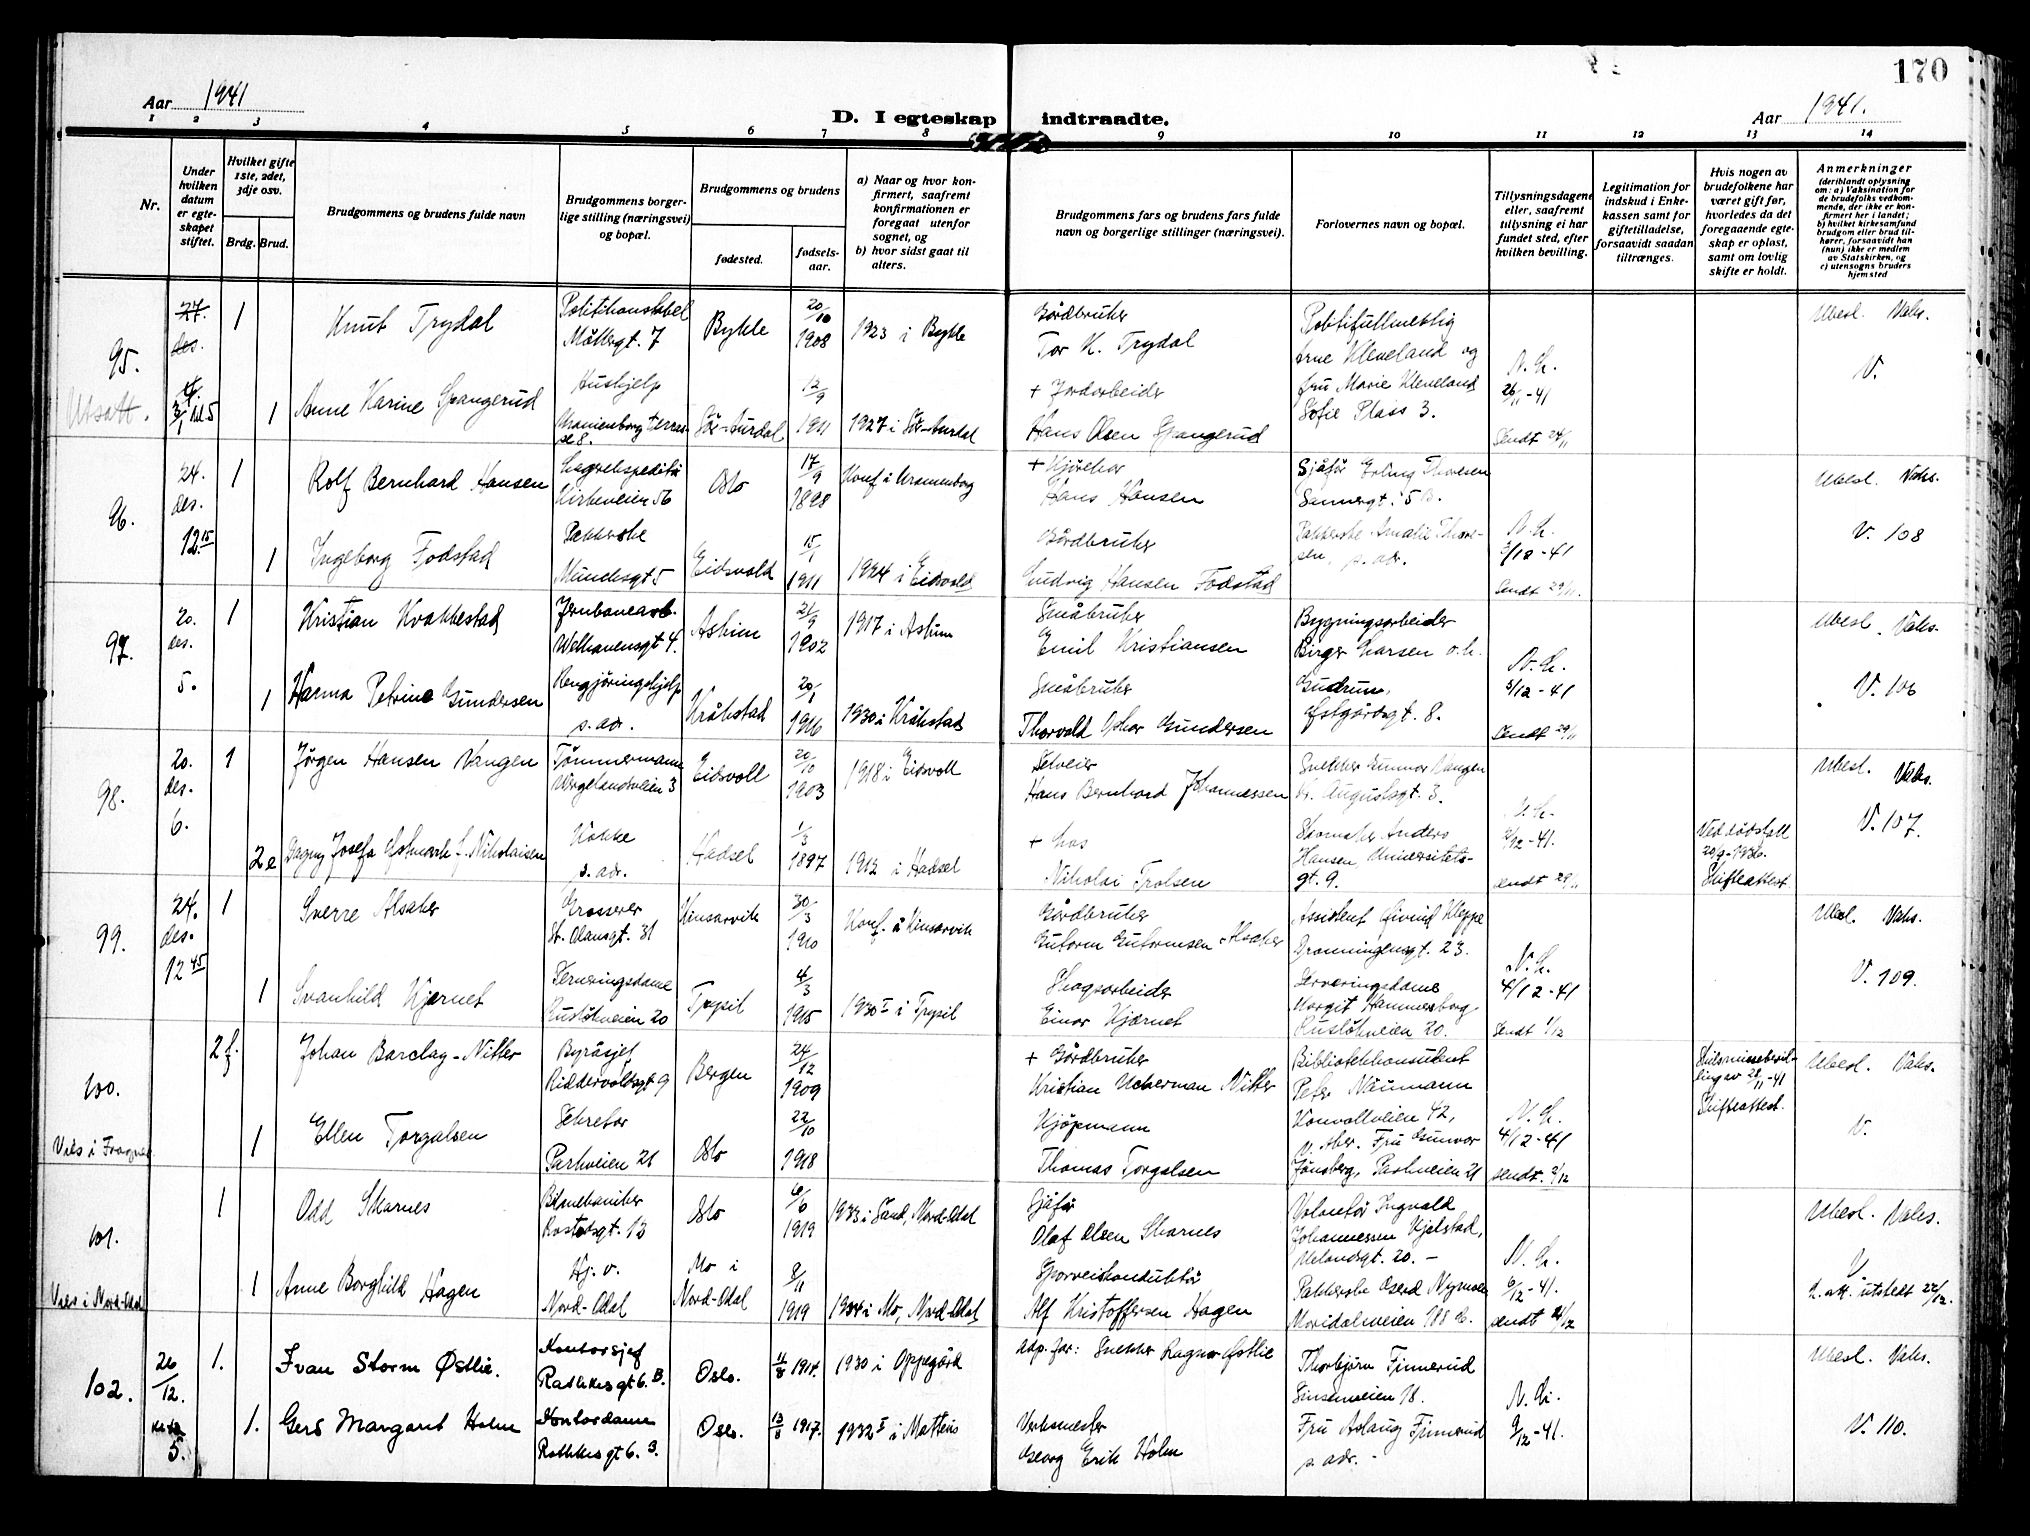 170
Aar 1941
D. I egteskap indtraadte.
Aar 1941.
1 2 3 4 5 6 7 8 9 10 11 12 13 14
Nr.
Under hvilken datum er egteskapet stiftet.
Hvilket gifte 1ste, 2det, 3dje osv.
Brdg. Brud.
Brudgommens og brudens fulde navn
Brudgommens borgerlige stilling (næringsvei) og bopæl.
Brudgommens og brudens
fødested. fødselsaar.
a) Naar og hvor konfirmert, saafremt konfirmationen er foregaat utenfor sognet, og
b) hvor sidst gaat til alters.
Brudgommens fars og brudens fars fulde navn og borgerlige stillinger (næringsvei).
Forlovernes navn og bopæl.
Tillysningsdagene eller, saafremt tillysning ei har fundet sted, efter hvilken bevilling.
Legitimation for indskud i Enkekassen samt for giftetilladelse, forsaavidt saadan tiltrænges.
Hvis nogen av brudefolkene har været gift før, hvorledes da det foregaaende egteskap er opløst, samt om lovlig skifte er holdt.
Anmerkninger
(deriblandt oplysning om: a) Vaksination for de brudefolks vedkommende, der ikke er konfirmert her i landet; b) hvilket kirkesamfund brudgom eller brud tilhører, forsaavidt han (hun) ikke er medlem av Statskirken, og c) utensogns bruders hjemsted
95. 27. des. 1 Knut Trydal Politikonstabel Møllergt. 7 Bykle 20/10 1908 1923 i Bykle Gårdbruker Tor K. Trydal Politifullmektig Arne Kleveland og fru Marie Kleveland Sofie Plass 3. N. L. 26/11-41 Sendt 24/11 Ubesl. Vaks. V.
Utsatt. 1 Anne Karine Spangerud Hushjelp Uranienborg terrasse 8. Sør-Aurdal 12/9 1911 1927 i Sør-Aurdal + Jordarbeider Hans Olsen Spangerud
96. 24. des. 12.15 1 Rolf Bernhard Hansen Lagerekspeditør Kirkeveien 56 Oslo 17/9 1898 Konf i Uranienborg + Kjørekar Hans Hansen Sjåfør Erling Thoresen N. L. 3/12-41 Sendt 29/11. Ubesl. Vaks. V. 108
1 Ingeborg Fodstad Pakkerske Munchsgt 5 Eidsvold 15/1 1911 1924 i Eidsvold Gårdbruker Ludvig Hansen Fodstad Pakkerske Amalie Thoresen, s. adr.
97. 20. des. 5. 1 Kristian Kvakkestad Jernbanearb. Welhavensgt 4. Askim 21/9 1902 1917 i Askim Småbruker Emil Kristiansen Bygningsarbeider Birger Larsen o. h. Gudrun, Østgårdsgt. 8. N. L. 3/12-41 Sendt 29/11 Ubesl. Vaks. V. 106
1 Hanna Petrine Gundersen Rengjøringshjelp s. adr. Kråkstad 20/1 1916 1930 i Kråkstad Småbruker Thorvald Oskar Gundersen
98. 20. des. 6. 1 Jørgen Hansen Vangen Tømmermann Wergelandsveien 3 Eidsvoll 20/10 1903 1918 i Eidsvoll Selveier Hans Bernhard Johannessen Snekker Gunnar Vangen Kr. Augustsgt. 3. N. L. 2/12-41. sendt 29/11 Ubesl. Vaks. V. 107.
2e Dagny Josefa Østmark f. Nikolaisen Kokke s. adr. Hadsel 1/3 1897 1912 i Hadsel + Los Nikolai Trolsen Skomaker Anders Hansen Universitetsgt. 9. Ved dødsfall 20/9-1936. Skifteattest.
99. 24. des. 12 45 1 Sverre Alsaker Grosserer St. Olavsgt. 31 Kinsarvik 30/3 1910 Konf. i Kinsarvik Gårdbruker Gutorm Gutormsen Alsaker Assistent Øivind Kleppe Dronningensgt. 23. N. L. 4/12-41 Sendt 1/12 Ubesl. Vaks. V. 109.
1 Svanhild Kjernet Serveringsdame Ruseløkveien 20 Trysil 4/3 1915 1930 i Trysil Skogsarbeider Einar Kjærnet Serveringsdame Margit Hammersborg Ruseløkveien 20.
100. 2 f. Johan Barclay-Nitter Byråsjef Riddervoldsgt 9 Bergen 24/12 1909 + Gårdbruker Kristian Uckerman Nitter Bibliotekkonsulent Peter Naumann Konvallveien 42, V. Aker. Fru Gunvor Jønsberg, Parkveien 21 N. L. 4/12-41 sendt. 2/12 Skilsmissebevilling av 28/11-41 Skifteattest. Ubesl. Vaks. V.
Vies i Frogner 1 Ellen Torgalsen Sekretær Parkveien 21 Oslo 22/10 1918 Kjøpmann Thomas Torgalsen
101. 1 Odd Skarnes Bilmekaniker Rostedsgt. 13 Oslo 6/6 1919 1933 i Sand, Nord-Odal Sjåfør Olaf Olsen Skarnes Volontør Ingvald Johannessen Kjelstad, Uelandsgt. 20. - N. L. 6/12-41. sendt 4/12 Ubesl. Vaks. V
Vies i Nord-Odal 1 Anne Borghild Hagen Hj. v. Nord-Odal Mo i Nord-Odal 8/11 1919 1934 i Mo, Nord-Odal Sporveiskonduktør Alf Kristoffersen Hagen Maridalsveien 188 L. att. utstedt 22/12.
102. 26/12. 5. 1. Ivan Storm Østlie. Kontorsjef Rathkesgt 6. B. Oslo. 11/8 1914. 1930 i Oppegård Adp. far: Snekker Ragnar Østlie Thorbjørn Finnerud Sinsenveien 18. N. L. 9/12-41. Ubesl. Vaks. V. 110.
1. Gerd Margaret Holm Kontordame Rathkesgt 6. B Oslo. 13/8 1917. 1932 i Matteus Verksmester Georg Erik Holm Fru Aslaug Finnerud s. adr. -